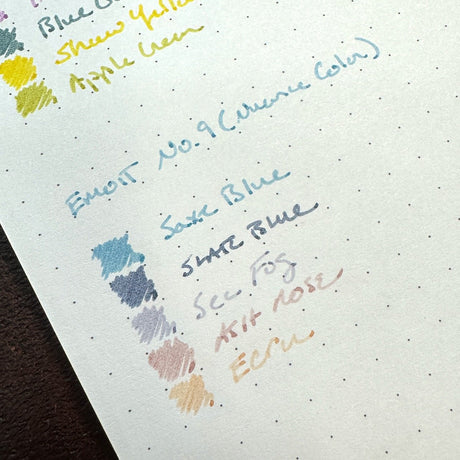 Blue
Show Yellow
Apple Green
EMOTT No. 9 (Nuance Color)
Saxe Blue
SLATE BLUE
Sea Fog
ASH ROSE
Ecru